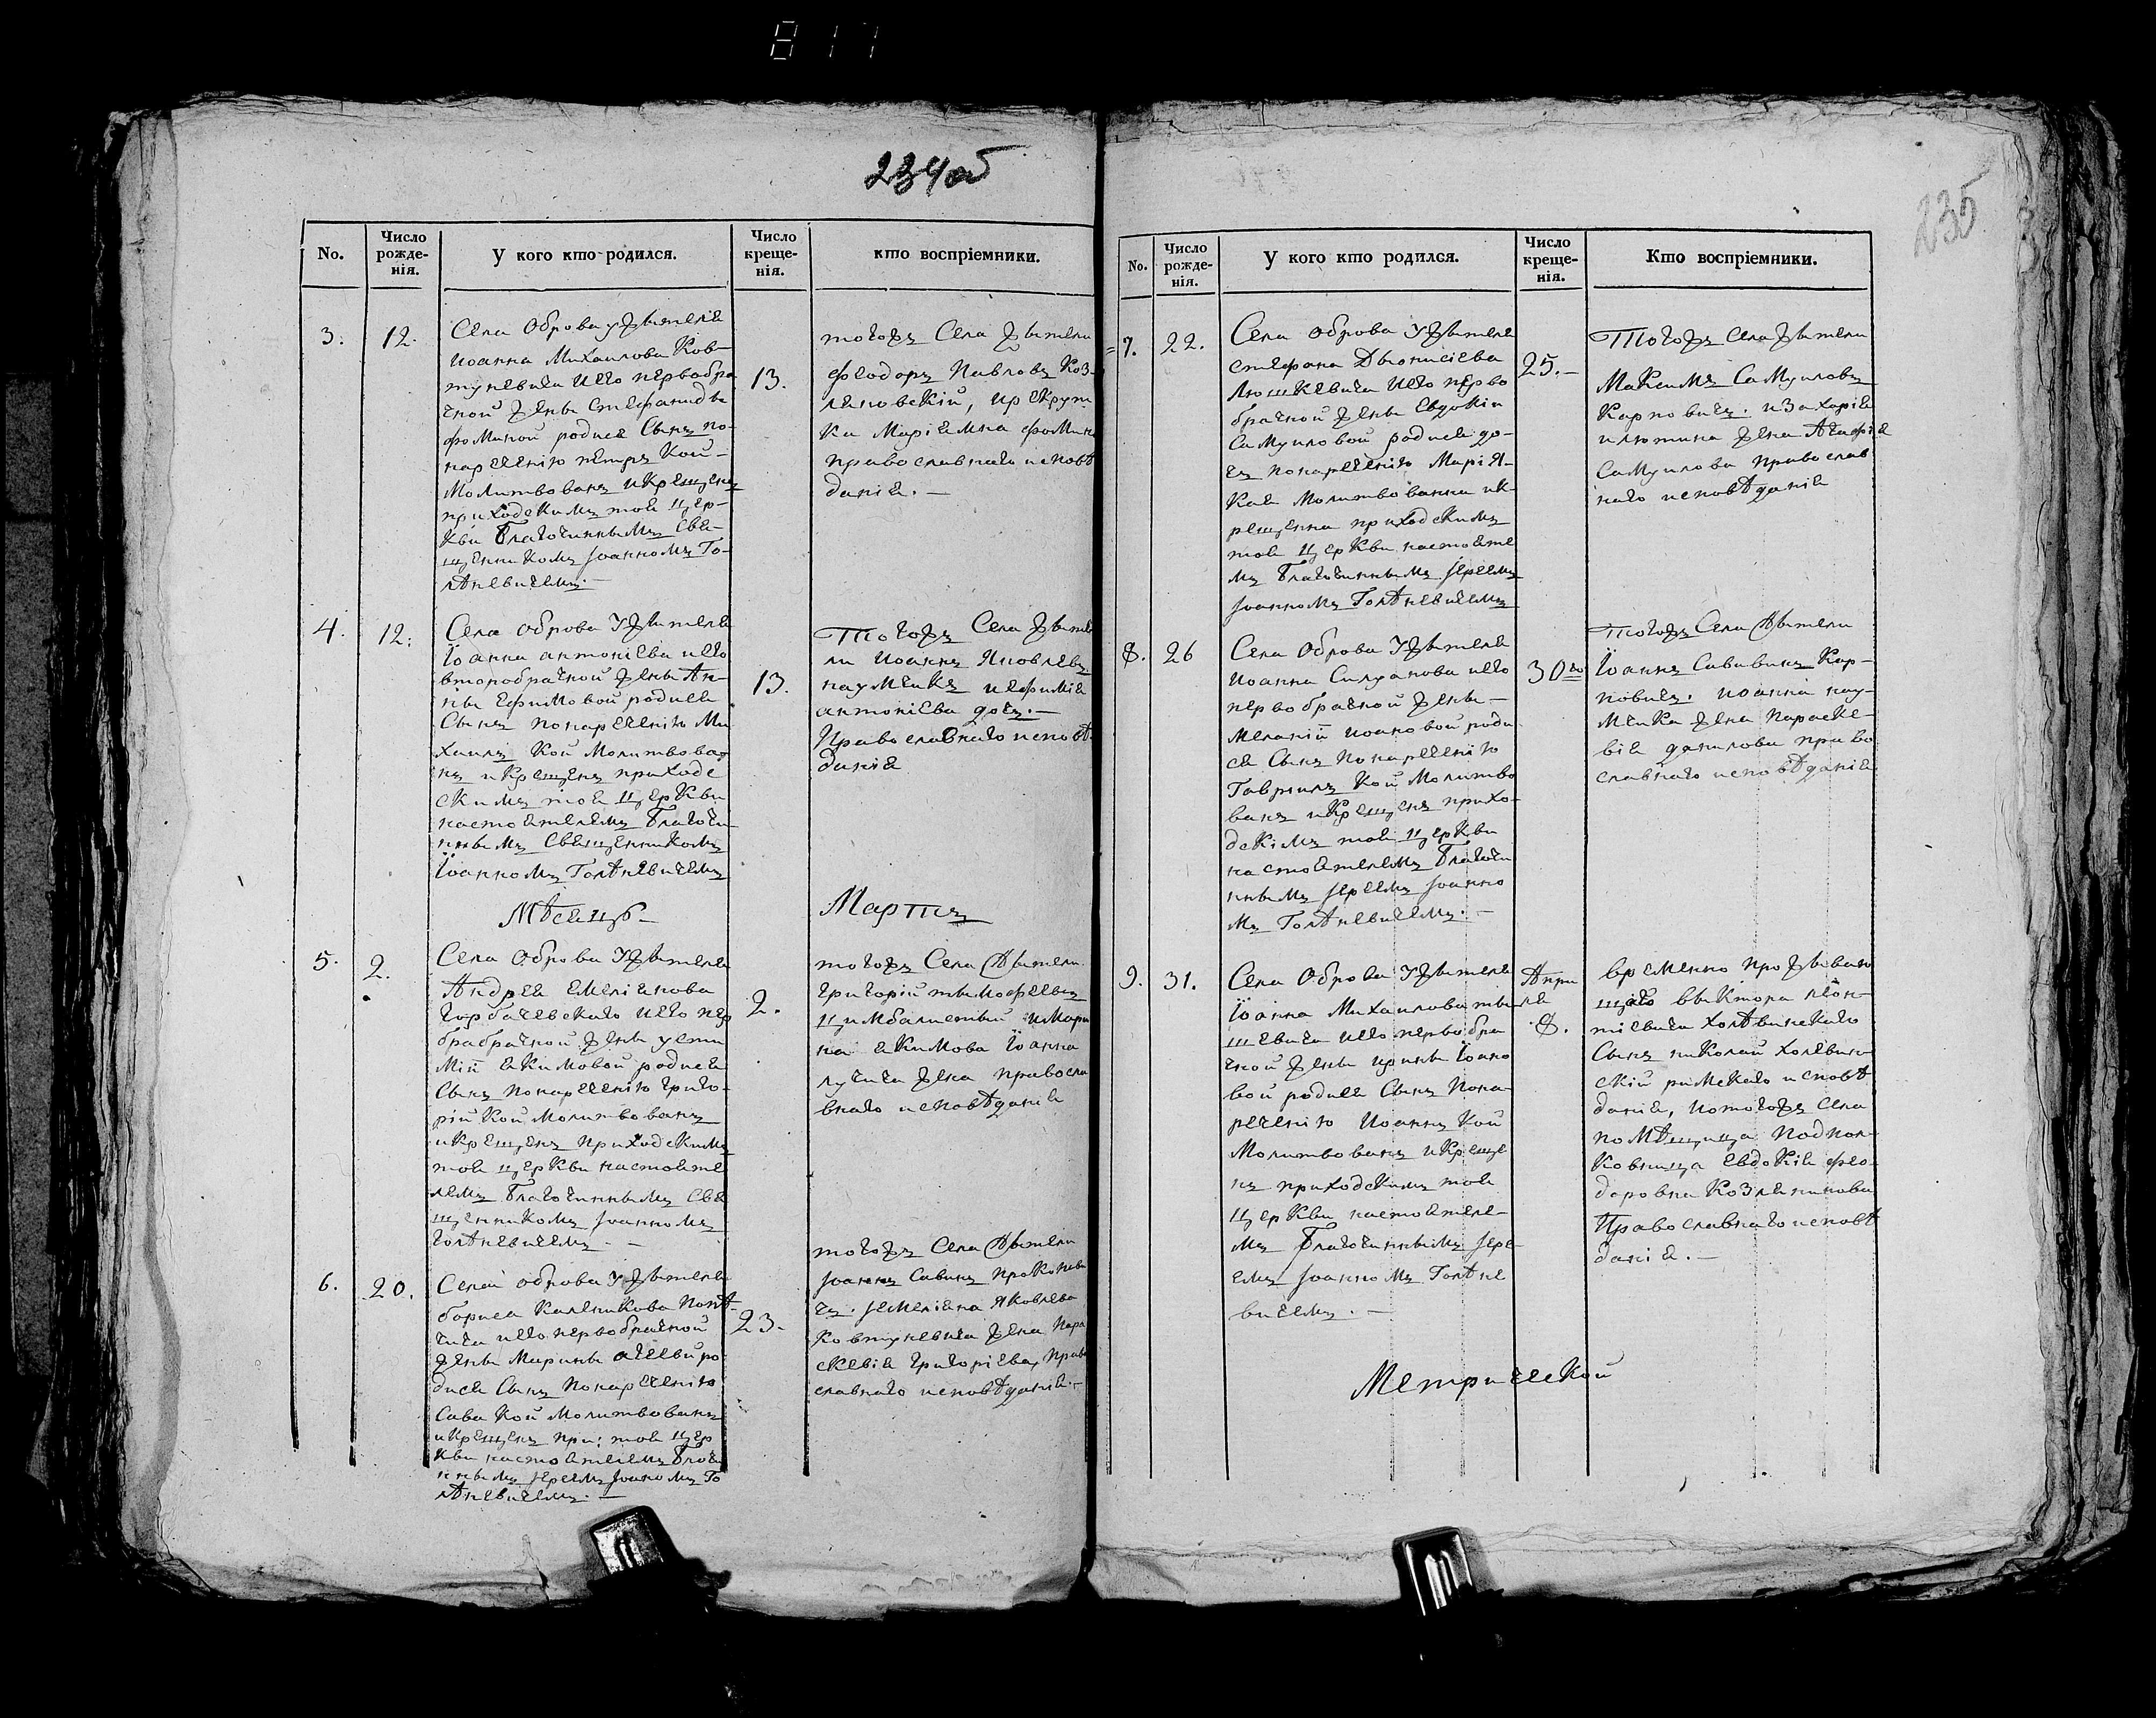 817
234об
No.
Число рожде-нія.
У кого кто родился.
Число креще-нія.
кто воспріемники.
3.
12.
Села Оброва у жытеля
Иоанна Михаилова Ков-
туневича и его первобра
чной жены Стефаниды
Фоминой родися Сынъ по-
наречению петръ Кой-
Молитвованъ и Крещенъ
приходскимъ тоя цер-
кви Благочиннымъ Свя-
щенникомъ Іоанномъ Го-
лѣневичемъ.—
13.
тогожъ Села жытели
Феодоръ Павловъ Коз-
ляковскій,
ки Маріямна Фомина
православнаго исповѣ
данія.—
4.
12.
Села Оброва У жытеля
Іоанна антоніева и его
второбрачной жены Ан-
ны Ефимовой родися
Сынъ понареченію Ми
хаилъ Кой Молитвова
нъ и Крещенъ приходс
скимъ тоя церкви
настоятелемъ Благочи-
ннымъ Священникомъ
Іоанномъ Голѣневичемъ
13.
Тогожъ Села жыте
ли Иоаннъ Яковлевъ
наумчикъ и ефимія
антоніева дочъ.—
Православнаго исповѣ-
данія
Мѣсяцъ
Мартъ
5.
2.
Села Оброва У жытеля
Андрея Емеліянова
Горбачевскаго и его пер
брабрачной жены усти
міи Якимовой родися
Сынъ понареченію григо-
рій Кой Молитвованъ
и Крещенъ Приходскимъ
тоя церкви настояте
лемъ Благочиннымъ Свя
щенникомъ Іоанномъ
голѣневичемъ.—
2.
тогожъ Села Жытели
григорій тымофеевъ
Цимбалистый и Мари
на Якимова Іоанна
лучича жена правосла
внаго исповѣданія
6.
20.
Села оброва У жытеля
бориса Каленикова
чича и его первобрачной
жены Марины ро
дися Сынъ Понареченію
Сава Кой Молитвованъ
и Крещенъ при: тоя цер
кви настоятелемъ Благочи
ннымъ Іереемъ Іоаномъ Го
лѣневичемъ.—
23.
тогожъ Села Жытели
Іоаннъ Савинъ Прокопови
чъ. Іемеліяна Яковлева
Ковтуневича жена Пара
скевія григоріева, Право
славнаго исповѣданія.—
235
No.
Число рожде-нія.
У кого кто родился.
Число креще-нія.
Кто воспріемники.
7.
22.
Села оброва У жытеля
стефана Дыонисіева
Люшкевича и его перво
брачной жены Евдокіи
Самуиловой родися до-
чъ понареченію Марія-
Кая Молитвованна и к-
рещенна приходскимъ
тоя церкви настояте
мъ Благочиннымъ Іереемъ
Іоанномъ Голѣневичемъ
25.—
Тогожъ села жытели
Максимъ Самуиловъ
Карповичъ. и Захарія
илютина жена Агафія
Самуилова Православ
наго исповѣданія
8.
26
Села Оброва У жытеля
Иоанна Силуанова и его
первобрачной жены—
Меланіи иоановой роди
ся Сынъ Понареченію
Гавріилъ Кой Молитво
ванъ и Крещенъ прихо-
дскімъ тоя церкви
настоятелемъ Благочи
ннымъ Іереемъ Іоанно
мъ Голѣневичемъ.—
30го
тогожъ Села Жытели
Іоаннъ Саввинъ Кар-
повичъ. Иоанна нау-
мчика жена Параске-
вія данилова право
славнаго исповѣданія
9.
31.
Села Оброва У жытеля
Іоанна Михаилова ты-
шевича и его первобра
чной жены ирины Іоано
вой родися Сынъ Пона-
реченію Иоаннъ Кой
Молитвованъ и Креще
нъ приходскимъ тоя
церкви настоятеле-
мъ Благочиннымъ Іере-
емъ Іоанномъ Голѣне
вичемъ.—
Апри
ля
8.
временно прожываю
щаго выктора леон-
тіевича Холѣвинскаго
Сынъ николай холевин-
скій римскаго исповѣ
данія, и тогожъ села
помѣщица Подпол-
ковница Евдокія Фео-
доровна Козляинова
Православнаго исповѣ
данія.—
Метрической